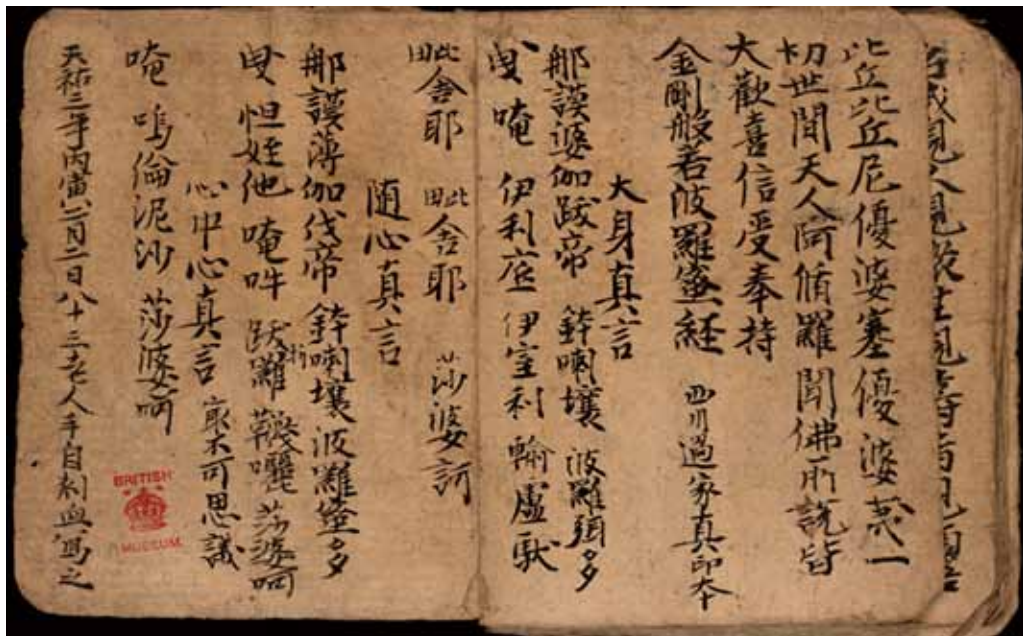 我見人見衆生見壽者見
比丘比丘尼優婆塞優婆夷一
切世間天人阿脩羅聞佛所説皆
大歡喜信受奉持
金剛般若波羅蜜経 西川過家真印本
大身真言
那謨婆伽跋帝 鉢喇壤 波羅弭多
曳 唵 伊利底 伊室利 輸盧馱
毗舍耶 毗舍耶 莎婆訶
随心真言
那謨薄伽伐帝 鉢喇壤波羅蜜多
曳 怛姪他 唵吽 跋折羅 囉 莎婆呵
心中心真言 最不可思議
唵 嗚倫泥沙 莎婆呵
天祐三年丙寅二月二日八十三老人手自刺血寫之
BRITISH
MUSEUM